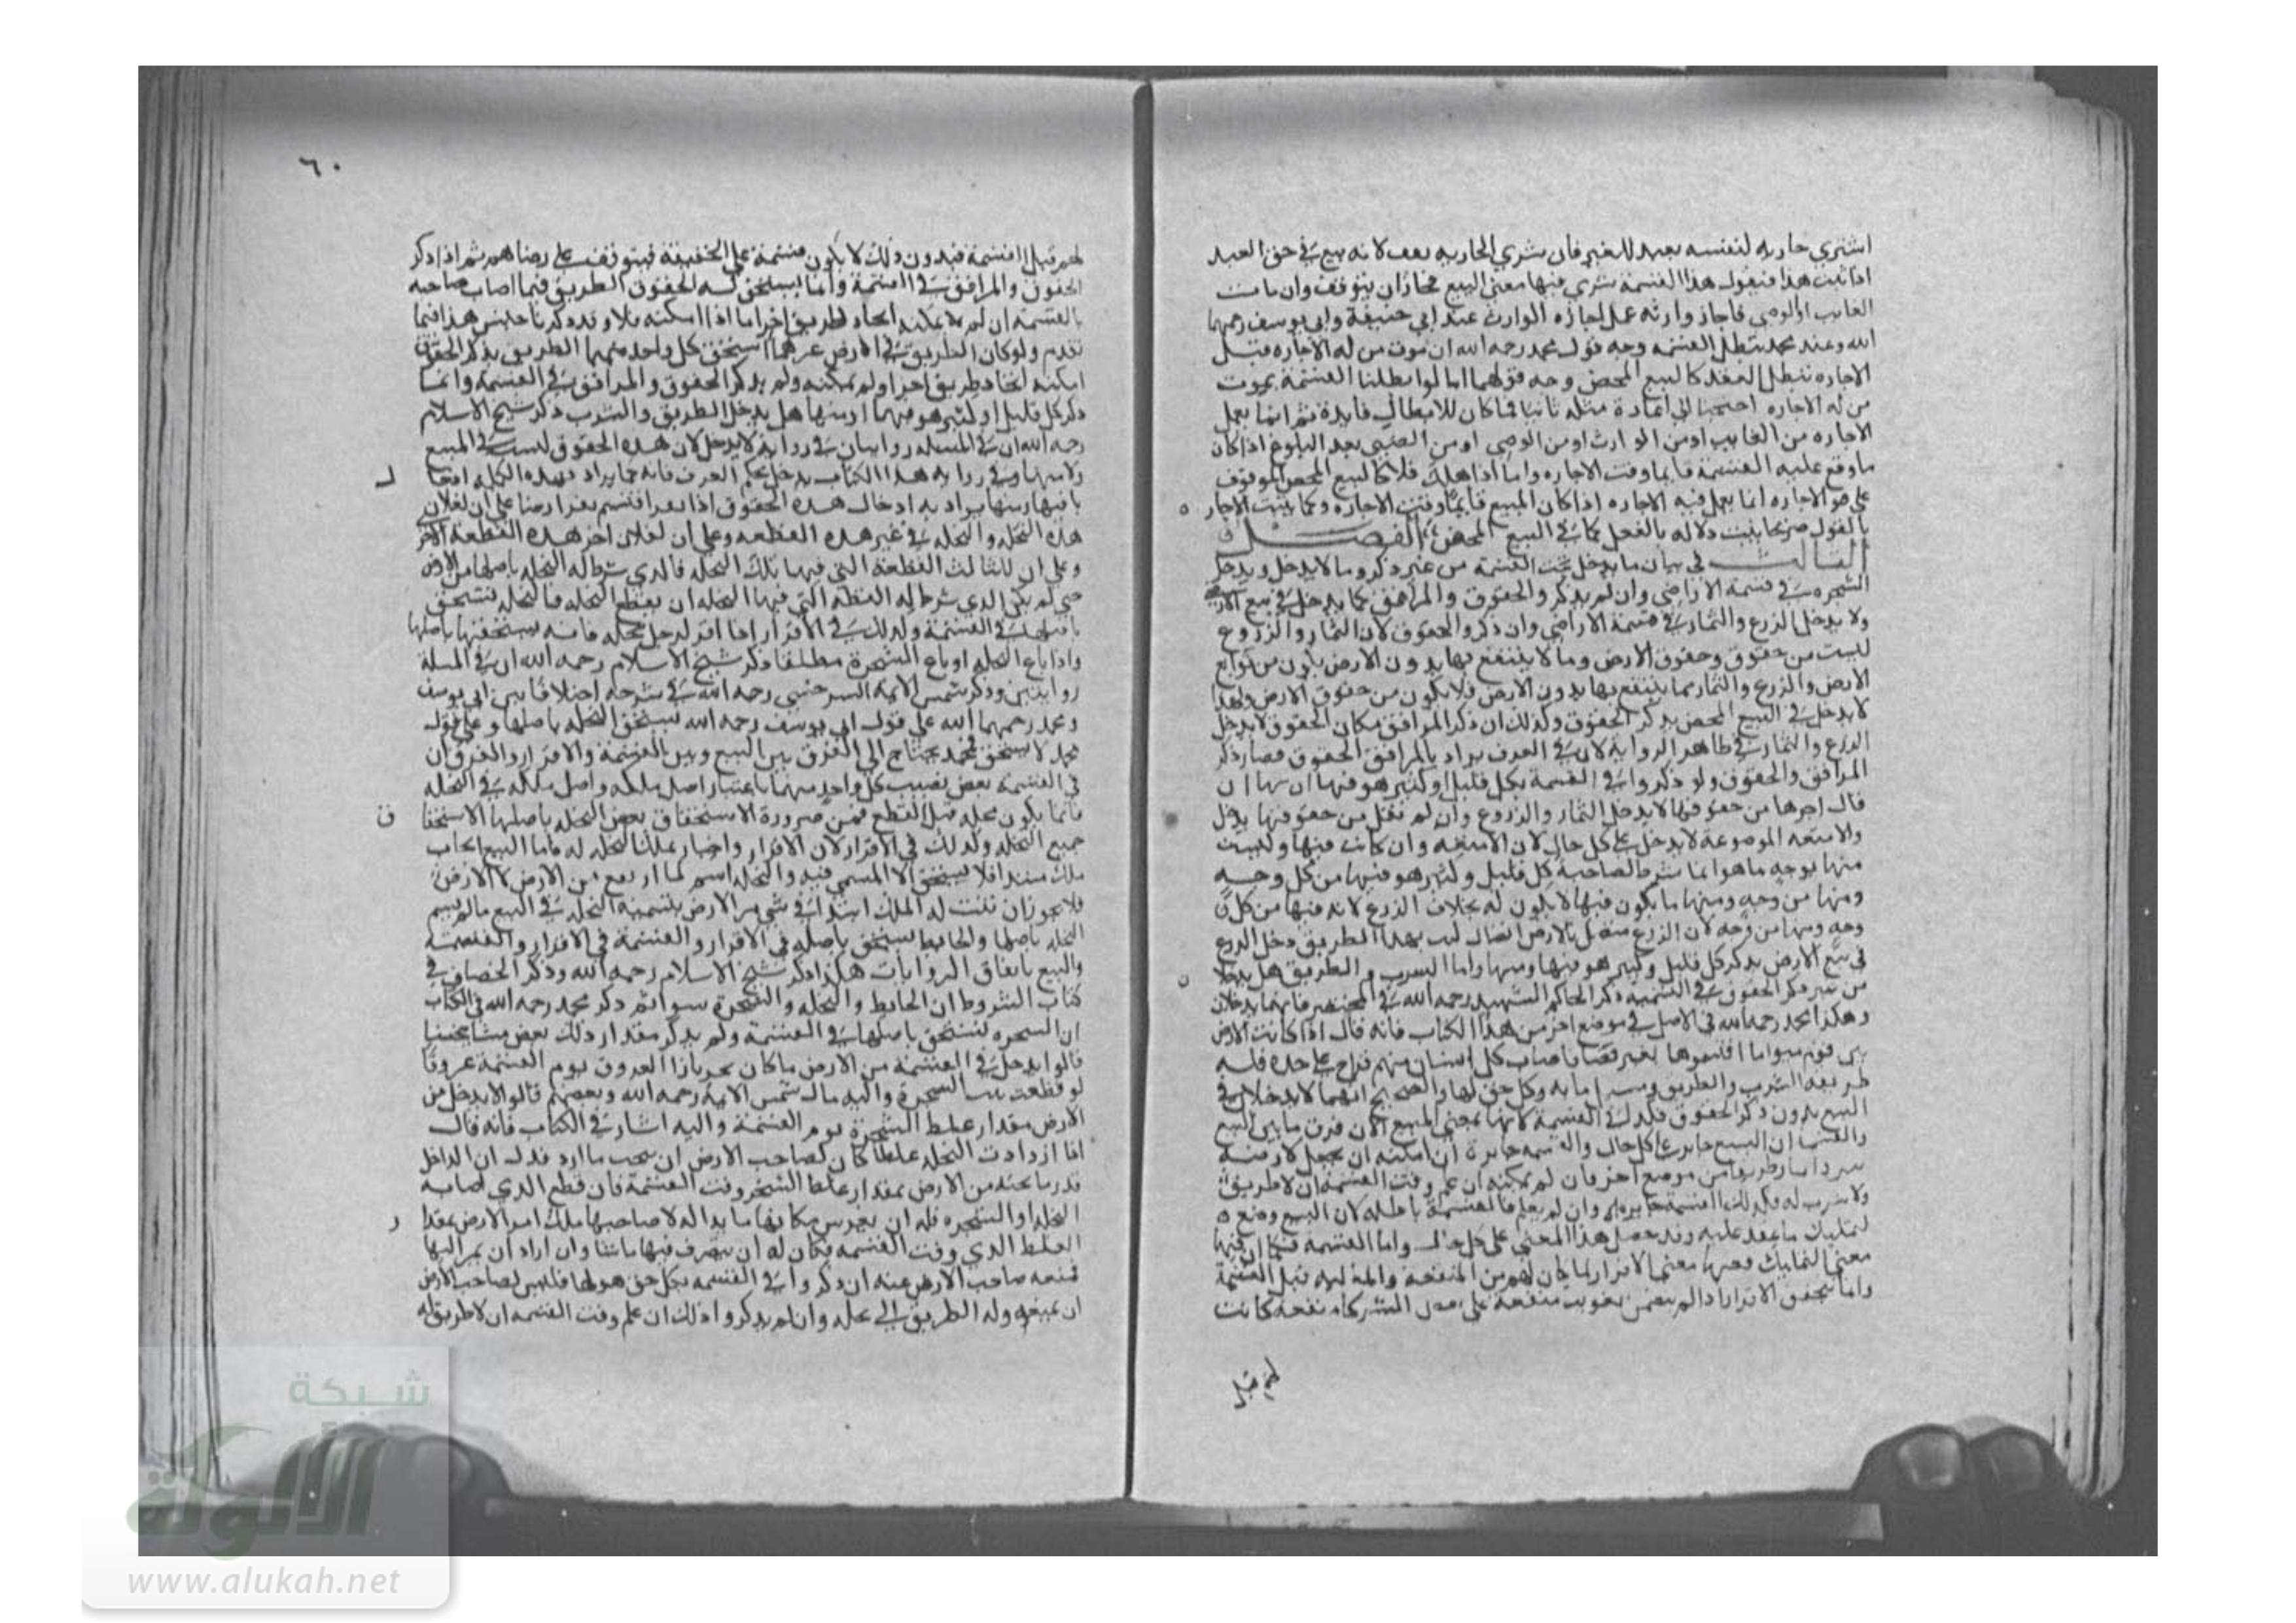 اشتري جاريه لنفسه بعبد للغير فان شري الجاريه يقف لانه بيع في حق العبد
اذا ثبت هذا فنقول هذا القسمة شري فيها معني البيع فجاز ان يتوقف وان مات
الغايب او الوصي فاجاز وارثه عمل اجازه الوارث عند ابي حنيفة وابي يوسف رحمهما
الله وعند محمد تبطل القسمه وجه قول محمد رحمه الله ان موت من له الاجازه قبل
الاجازه تبطل العقد كالبيع المحض وجه قولهما انا لو ابطلنا القسمة بموت
من له الاجازه احتجنا الي اعادة مثله ثانيا فما كان للابطال فايدة ثم انما يعمل
الاجازه من الغايب او من الوارث او من الوصي او من الصبي بعد البلوغ اذا كان
ما وقع عليه القسمة قايما وقت الاجازه واما اذا هلك فلا كالبيع المحض الموقوف
علي هو الاجازه انما يعمل فيه الاجازه اذا كان المبيع قايما وقت الاجازه وكما يثبت الاجاز
بالقول صريحا يثبت دلاله بالفعل كما في البيع المحض الفصل
الثالث في بيان ما يدخل تحت القسمة من غير ذكر وما لا يدخل ويدخل
الشجره في قسمة الاراضي وان لم يذكروا الحقوق والمرافق كما يدخل في بيع الارض
ولا يدخل الزرع والثمار في قسمة الاراضي وان ذكروا الحقوق لان الثمار والزروع
ليست من حقوق وحقوق الارض وما لا ينتفع بها بدون الارض يكون من توابع
الارض والزرع والثمار مما ينتفع بها بدون الارض فلا يكون من حقوق الارض ولهذا
لا يدخل في البيع المحض بذكر الحقوق وكذلك ان ذكر المرافق مكان الحقوق لا يدخل
الزرع والثمار في ظاهر الرواية لان في العرف يراد بالمرافق الحقوق فصار ذكر
المرافق والحقوق ولو ذكروا في القسمة بكل قليل وكثير هو فيها ان
قال اخرها من حقوقها لا يدخل الثمار والزروع وان لم يقل من حقوقها يدخل
والامتعه الموضوعة لا يدخل علي كل حال لان الامتعه وان كانت فيها وليست
منها بوجه ما هو انما شرط لصاحبه كل قليل وكثير هو فيها من كل وجه
ومنها من وجه ومنها ما يكون فيها لا يكون له بخلاف الزرع لانه فيها من كل
وجه ومنها من وجه لان الزرع متصل بالارض اتصال بهذا الطريق دخل الزرع
في بيع الارض بذكر كل قليل وكثير هو فيها ومنها واما الشرب والطريق هل يدخلا
من غير ذكر الحقوق في القسمة ذكر الحاكم الشهيد رحمه الله في المختصر فانهما يدخلان
وهكذا محمد رحمه الله في الاصل في موضع اخر من هذا الكتاب فانه قال اذا كانت الارض
بين قوم ميراثا اقتسموها بغير قضا فاصاب كل انسان منهم قراح علي حده فله
طريقه الشرب والطريق مايه وكل حق لها والصحيح انهما لا يدخلان في
البيع بدون ذكر الحقوق فكذلك في القسمة لانها بمعني المبيع الا ان فرق ما بين البيع
والقسمة ان البيع جايز علي كل حال والقسمه جايزة ان امكنه ان يجعل لارضه
طريقا من موضع اخر فان لم يمكنه ان علم وقت القسمة ان لا طريق
ولا شرب له فكذلك القسمة جايزه وان لم يعلم فالقسمة باطله لان البيع وضع
لتمليك ما عقد عليه وقد حصل هذا المعني علي كل حال واما القسمه فكما ان فيها
معني التمليك ففيها معني الافراز لما كان لهم من المنفعة والماليه قبل القسمة
وانما يتحقق الافراز اذا لم يتضمن تفويت منفعة علي بعض الشركا منفعه كانت
لهم قبل
٦٠
لهم قبل القسمة فبدون ذلك لا يكون قسمة علي الحقيقة فيتوقف علي رضاهم ثم اذا ذكر
الحقوق والمرافق في القسمة وانما يستحق له الحقوق الطريق فيما اصاب صاحبه
بالقسمة ان لم يمكنه اتخاذ طريق اخر اما اذا امكنه فلا وقد ذكرنا جنس هذا فيما
تقدم ولو كان الطريق في الارض عرهما استحق كل واحد منهما الطريق بذكر الحقوق
امكنه اتخاذ طريق اخر او لم يمكنه ولم يذكر الحقوق والمرافق في القسمة وانما
ذكر كل قليل او كثير هو فيها او منها هل يدخل الطريق والشرب ذكر شيخ الاسلام
رحمه الله ان في المسله روايتان في رواية لا يدخل لان هذه الحقوق ليست في المبيع
ولا منها وفي رواية هذا الكتاب يدخل بحكم العرف فانه مما يراد بهذه الكلم افعا
ما فيها ومنها يراد به ادخال هذه الحقوق اذا نفر اقتسم نفر ارضا علي ان لفلان
هذه النخله والنخله في غير هذه القطعه وعلي ان لفلان اخر هذه القطعة الاخر
وعلي ان للثالث القطعة التي فيها تلك النخله فالذي شرط له النخله باصلها من الارض
حتي لم يكن الذي شرط له القطه التي فيها النخله ان يقطع النخله فالنخله تستحق
باصلها في القسمة وكذلك في الاقرار اذا اقر لرجل بنخله فانه يستحقها باصلها
واذا باع النخله او باع الشجرة مطلقا ذكر شيخ الاسلام رحمه الله ان في المسلة
روايتين وذكر شمس الايمه السرخسي رحمه الله في شرحه اختلافا بين ابي يوسف
ومحمد رحمهما الله علي قول ابي يوسف رحمه الله يستحق النخله باصلها وعلي قول
محمد لا يستحق فمحمد يحتاج الي الفرق بين البيع وبين القسمة والاقرار والفرق ان
في القسمة بعض نصيب كل واحد منهما باعتبار اصل ملكه واصل ملكه في النخله
فانما يكون نخله قبل القطع فمن ضرورة الاستحقاق بعض النخله باصلها الاستحقا
جميع النخله وكذلك في الاقرار لان الاقرار واخبار بملك النخله له فاما البيع ايجاب
ملك مبتدا فلا يستحق الا المسمي فيه والنخله اسم لما ارتفع من الارض لا الارض
فلا يجوز ان يثبت له الملك ابتدا في شي من الارض بتسمية النخله في البيع ما لم يسم
النخله باصلها والحايط يستحق باصله في الاقرار والقسمة في الاقرار والقسمة
والبيع باتفاق الروايات هكذا ذكر شيخ الاسلام رحمه الله وذكر الخصاف في
كتاب الشروط ان الحايط والنخله والشجرة سوا ثم ذكر محمد رحمه الله في الكتاب
ان الشجره تستحق باصلها في القسمة ولم يذكر مقدار ذلك بعض مشايخنا
قالوا يدخل في القسمة من الارض ما كان بحرازا العروق يوم القسمة عروقا
لو قطعت الشجرة واليه مال شمس الايمة رحمه الله وبعضهم قالوا لا يدخل من
الارض مقدار غلظ الشجرة يوم القسمة واليه اشار في الكتاب فانه قال
اذا ازدادت النخله غلظا كان لصاحب الارض ان ينحت ما ازد فدل ان الداخل
قدر ما تحته من الارض بمقدار غلظ الشجر وقت القسمة فان قطع الذي اصابه
النخله او الشجره فله ان يغرس مكانها ما بدا له لا صاحبها ملك امر الارض بمقدا
الغلظ الذي وقت القسمه فكان له ان يتصرف فيها ما شا وان اراد ان يمر اليها
فمنعه صاحب الارض عنه ان ذكروا في القسمه بكل حق هو لها فليس لصاحب الارض
ان يمنعه وله الطريق الي نخله وان لم يذكروا ذلك ان علم وقت القسمه ان لا طريق له
شبكة
الألوكة
www.alukah.net